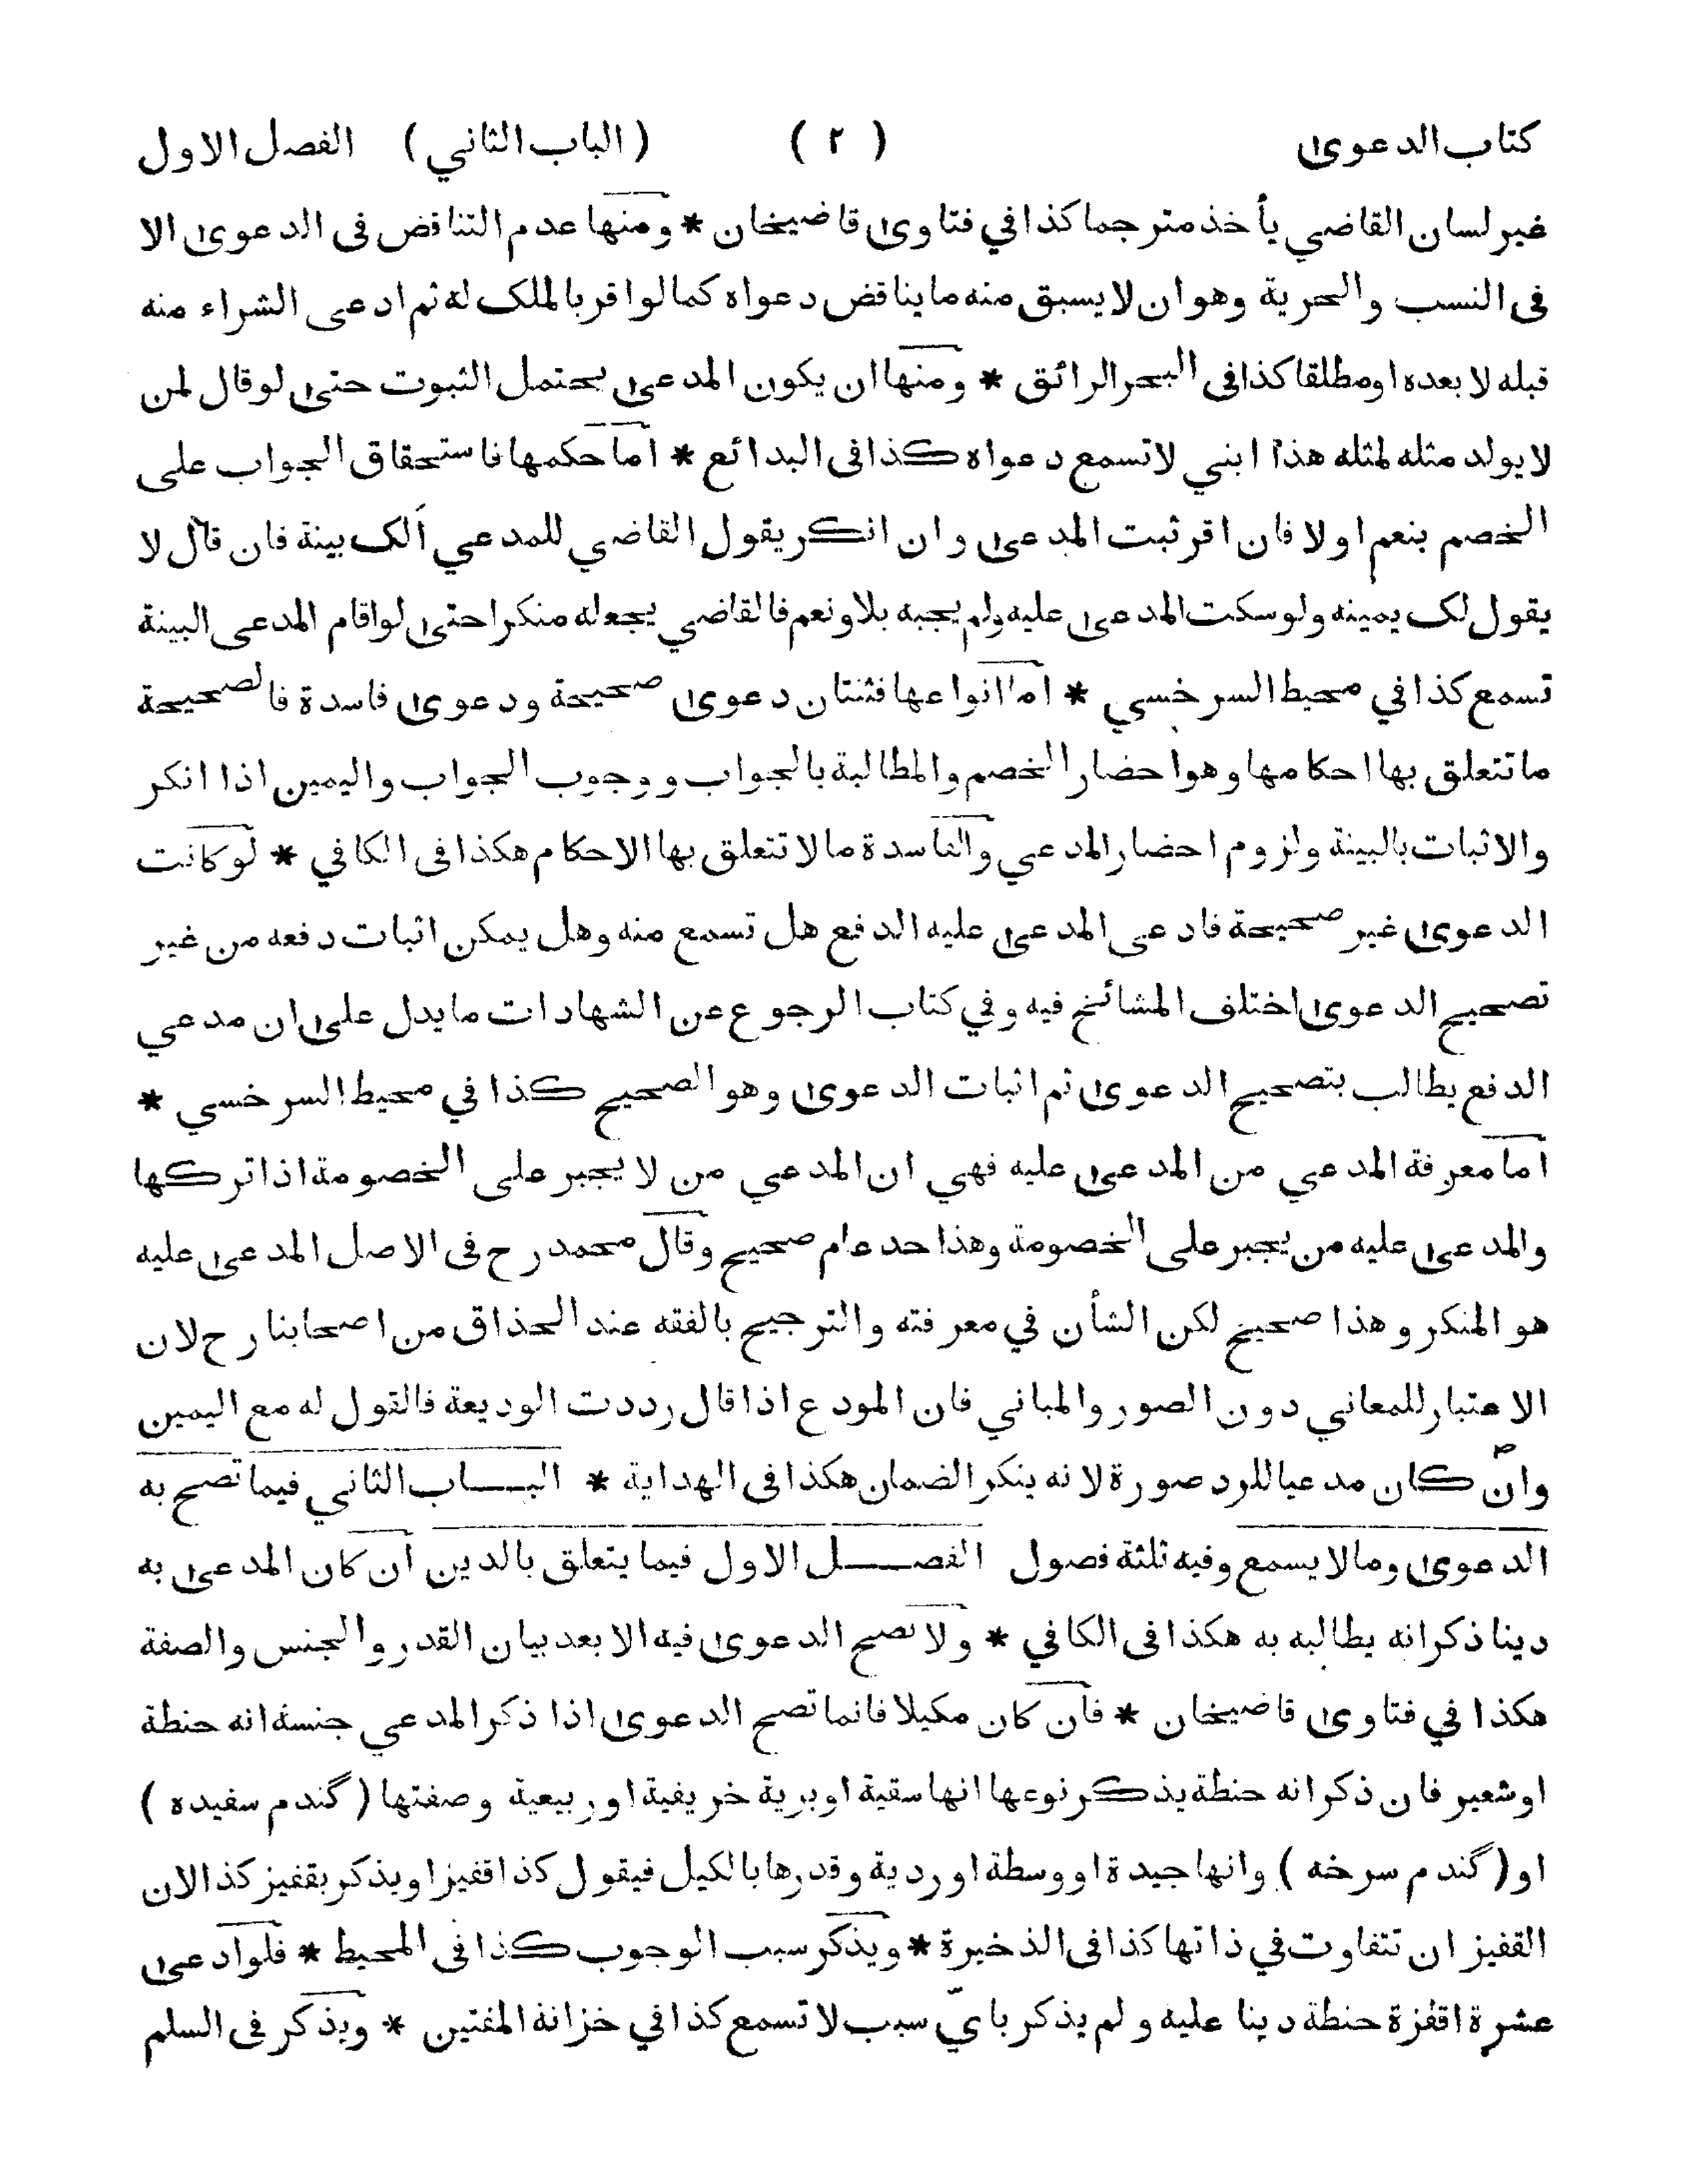 كتاب الدعوى ( ٢ ) (الباب الثاني) الفصل الاول
غير لسان القاضي يأخذ مترجما كذا في فتاوى قاضيخان * ومنها عدم التناقض فى الدعوى الا
فى النسب والحرية وهو ان لا يسبق منه ما يناقض دعواه كما لو اقر بالملك له ثم ادعى الشراء منه
قبله لا بعده او مطلقا كذا فى البحر الرائق * ومنها ان يكون المدعى يحتمل الثبوت حتى لو قال لمن
لا يولد مثله لمثله هذا ابني لا تسمع دعواه كذا فى البدائع * اما حكمها فاستحقاق الجواب على
الخصم بنعم او لا فان اقر ثبت المدعى وان انكر يقول القاضي للمدعي ألك بينة فان قال لا
يقول لك يمينه ولو سكت المدعى عليه ولم يجبه بلا ونعم فالقاضي يجعله منكرا حتى لو اقام المدعى البينة
تسمع كذا في محيط السرخسي * اما انواعها فثنتان دعوى صحيحة ودعوى فاسدة فالصحيحة
ما تتعلق بها احكامها وهو احضار الخصم والمطالبة بالجواب ووجوب الجواب واليمين اذا انكر
والاثبات بالبينة ولزوم احضار المدعي والفاسدة ما لا تتعلق بها الاحكام هكذا فى الكافي * لو كانت
الدعوى غير صحيحة فادعى المدعى عليه الدفع هل تسمع منه وهل يمكن اثبات دفعه من غير
تصحيح الدعوى اختلف المشائخ فيه وفي كتاب الرجوع عن الشهادات ما يدل على ان مدعي
الدفع يطالب بتصحيح الدعوى ثم اثبات الدعوى وهو الصحيح كذا في محيط السرخسي *
اما معرفة المدعي من المدعى عليه فهي ان المدعي من لا يجبر على الخصومة اذا تركها
والمدعى عليه من يجبر على الخصومة وهذا حد عام صحيح وقال محمد رح فى الاصل المدعى عليه
هو المنكر وهذا صحيح لكن الشأن في معرفته والترجيح بالفقه عند الحذاق من اصحابنا رح لان
الاعتبار للمعاني دون الصور والمباني فان المودع اذا قال رددت الوديعة فالقول له مع اليمين
وان كان مدعيا للرد صورة لانه ينكر الضمان هكذا فى الهداية * البــاب الثاني فيما تصح به
الدعوى وما لا يسمع وفيه ثلثة فصول الفصــل الاول فيما يتعلق بالدين ان كان المدعى به
دينا ذكر انه يطالبه به هكذا فى الكافي * ولا تصح الدعوى فيه الا بعد بيان القدر والجنس والصفة
هكذا في فتاوى قاضيخان * فان كان مكيلا فانما تصح الدعوى اذا ذكر المدعي جنسه انه حنطة
او شعير فان ذكر انه حنطة يذكر نوعها انها سقية او برية خريفية او ربيعية وصفتها (گندم سفيده)
او (گندم سرخه) وانها جيدة او وسطة او ردية وقدرها بالكيل فيقول كذا قفيزا ويذكر بقفيز كذا لان
القفيز ان تتفاوت في ذاتها كذا فى الذخيرة * ويذكر سبب الوجوب كذا فى المحيط * فلو ادعى
عشرة اقفزة حنطة دينا عليه ولم يذكر بايّ سبب لا تسمع كذا في خزانة المفتين * ويذكر فى السلم